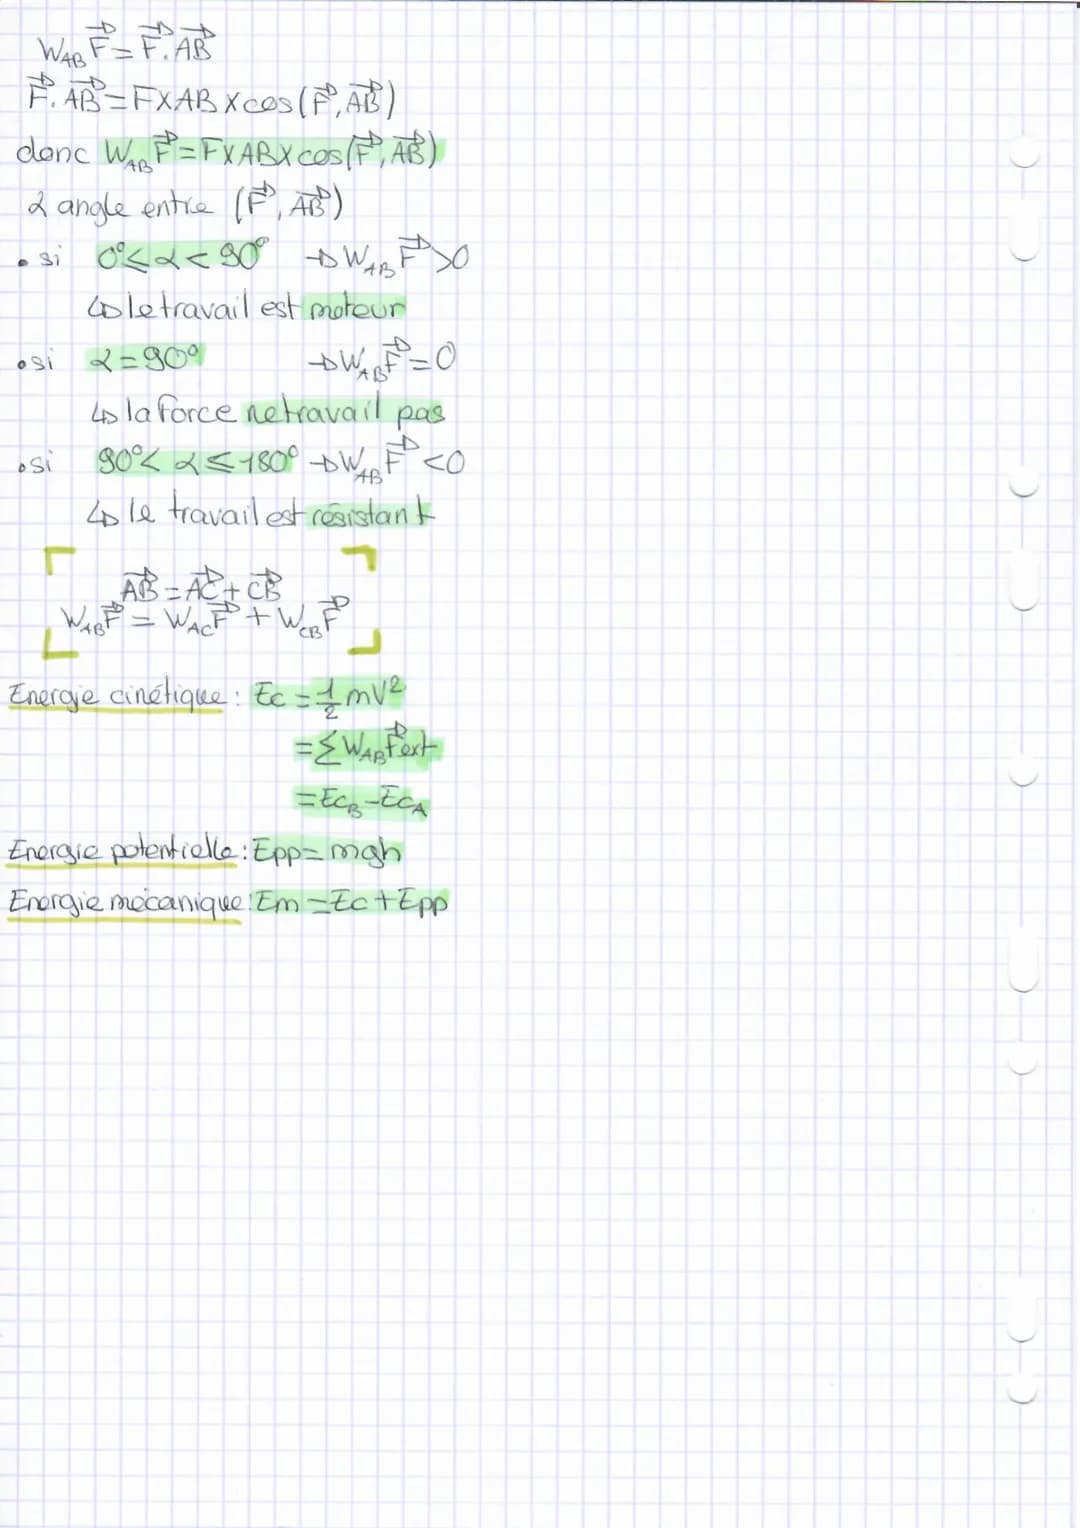 W_AB F⃗ = F⃗ . AB⃗
F⃗ . AB⃗ = F x AB x cos (F⃗, AB⃗)
donc W_AB F⃗ = F x AB x cos (F⃗, AB⃗)
α angle entre (F⃗, AB⃗)
• si 0° ≤ α < 90° → W_AB F⃗ > 0
↳ le travail est moteur
• si α = 90° → W_AB F⃗ = 0
↳ la force ne travail pas
• si 90° < α ≤ 180° → W_AB F⃗ < 0
↳ le travail est résistant
AB⃗ = AC⃗ + CB⃗
W_AB F⃗ = W_AC F⃗ + W_CB F⃗
Energie cinétique : Ec = 1/2 mV²
= Σ W_AB F⃗ext
= Ec_B - Ec_A
Energie potentielle : Epp = mgh
Energie mécanique : Em = Ec + Epp